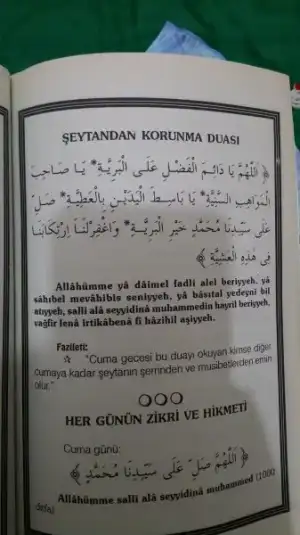 ŞEYTANDAN KORUNMA DUASI
﴿ اَللّٰهُمَّ يَا دَائِمَ الْفَضْلِ عَلَى الْبَرِيَّةِ * يَا صَاحِبَ
الْمَوَاهِبِ السَّنِيَّةِ * يَا بَاسِطَ الْيَدَيْنِ بِالْعَطِيَّةِ * صَلِّ
عَلَى سَيِّدِنَا مُحَمَّدٍ خَيْرِ الْبَرِيَّةِ * وَاغْفِرْلَنَا اِرْتِكَابَنَا
فِى هٰذِهِ الْعَشِيَّةِ ﴾
Allâhümme yâ dâimel fadli alel beriyyeh. yâ
sâhıbel mevâhibis seniyyeh, yâ bâsıtal yedeyni bil
atıyyeh, salli alâ seyyidinâ muhammedin hayril beriyyeh,
vağfir lenâ irtikâbenâ fî hâzihil aşiyyeh.
Fazileti:
☆ "Cuma gecesi bu duayı okuyan kimse diğer
cumaya kadar şeytanın şerrinden ve musibetlerden emin
olur."
HER GÜNÜN ZİKRİ VE HİKMETİ
Cuma günü:
﴿ اَللّٰهُمَّ صَلِّ عَلَى سَيِّدِنَا مُحَمَّدٍ ﴾
Allâhümme salli alâ seyyidinâ muhammed (1000
defa)